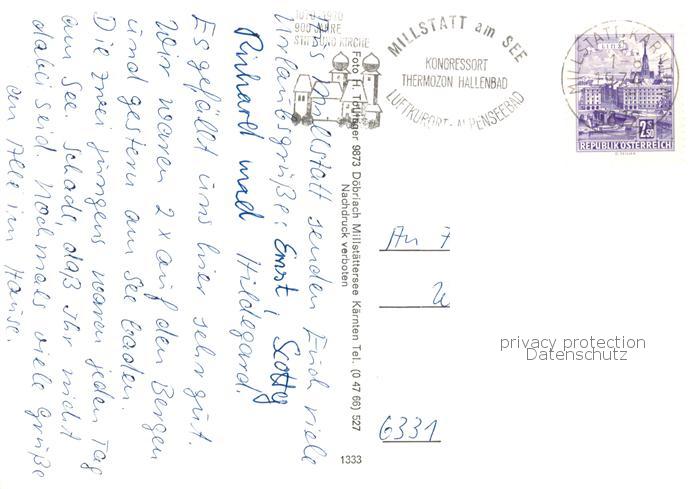 Aus Millstatt senden Euch viele
Urlaubsgrüße: Ernst, Scotty
Rinhard und Hildegard.
Es gefällt uns hier sehr gut.
Wir waren 2x auf den Bergen
und gestern am See baden.
Die zwei Jungens waren jeden Tag
am See. Schade, daß Ihr nicht
dabei seid. Nochmals viele Grüße
an Alle im Hause.
1070-1970
900 JAHRE
STIFT UND KIRCHE
MILLSTATT am SEE
KONGRESSORT
THERMOZON HALLENBAD
LUFTKURORT-ALPENSEEBAD
MILLSTATT, KÄRN
LINZ
2.50
REPUBLIK ÖSTERREICH
Foto H. 9873 Döbriach Millstättersee Kärnten Tel. (0 47 66) 527
Nachdruck verboten
1333
An
6331
privacy protection
Datenschutz